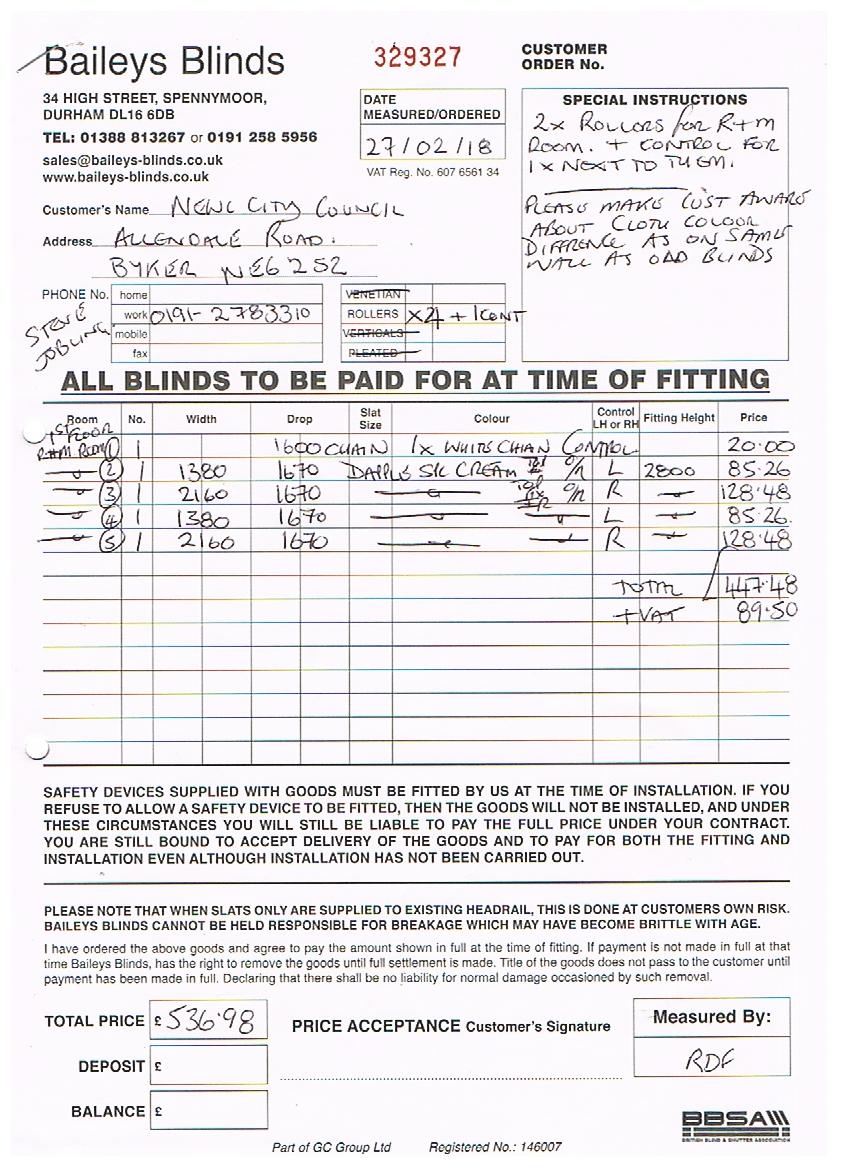 Baileys Blinds
34 HIGH STREET, SPENNYMOOR,
DURHAM DL16 6DB
TEL: 01388 813267 or 0191 258 5956
sales@baileys-blinds.co.uk
www.baileys-blinds.co.uk
329327
DATE
MEASURED/ORDERED
27/02/18
VAT Reg. No. 607 6561 34
CUSTOMER
ORDER No.
SPECIAL INSTRUCTIONS
2x ROLLORS for R+M
ROOM. + CONTROL FOR
1x NEXT TO THEM.
PLEASE MAKE CUST AWARE
ABOUT CLOTH COLOUR
DIFFERENCE AS ON SAME
WALL AS ODD BLINDS
Customer's Name NEWC CITY COUNCIL
Address ALLENDALE ROAD.
BYKER NE6 2SZ
PHONE No. home
work 0191-2783310
mobile
fax
STEVE
JOBLING
VENETIAN
ROLLERS x4 + 1CONT
VERTICALS
PLEATED
ALL BLINDS TO BE PAID FOR AT TIME OF FITTING
Room No. Width Drop Slat Size Colour Control LH or RH Fitting Height Price
1ST FLOOR
R+M ROOM 1 1 1600 CHAIN 1x WHITE CHIAN CONTROL 20.00
2 1 1380 1670 DAPPLE SIC CREAM O/R L 2800 85.26
3 1 2160 1670 O/R R 128.48
4 1 1380 1670 L 85.26.
5 1 2160 1670 R 128.48
TOTAL 447.48
+VAT 89.50
SAFETY DEVICES SUPPLIED WITH GOODS MUST BE FITTED BY US AT THE TIME OF INSTALLATION. IF YOU
REFUSE TO ALLOW A SAFETY DEVICE TO BE FITTED, THEN THE GOODS WILL NOT BE INSTALLED, AND UNDER
THESE CIRCUMSTANCES YOU WILL STILL BE LIABLE TO PAY THE FULL PRICE UNDER YOUR CONTRACT.
YOU ARE STILL BOUND TO ACCEPT DELIVERY OF THE GOODS AND TO PAY FOR BOTH THE FITTING AND
INSTALLATION EVEN ALTHOUGH INSTALLATION HAS NOT BEEN CARRIED OUT.
PLEASE NOTE THAT WHEN SLATS ONLY ARE SUPPLIED TO EXISTING HEADRAIL, THIS IS DONE AT CUSTOMERS OWN RISK.
BAILEYS BLINDS CANNOT BE HELD RESPONSIBLE FOR BREAKAGE WHICH MAY HAVE BECOME BRITTLE WITH AGE.
I have ordered the above goods and agree to pay the amount shown in full at the time of fitting. If payment is not made in full at that
time Baileys Blinds, has the right to remove the goods until full settlement is made. Title of the goods does not pass to the customer until
payment has been made in full. Declaring that there shall be no liability for normal damage occasioned by such removal.
TOTAL PRICE £ 536.98
DEPOSIT £
BALANCE £
PRICE ACCEPTANCE Customer's Signature
Measured By:
RDF
BBSA
BRITISH BLIND & SHUTTER ASSOCIATION
Part of GC Group Ltd Registered No.: 146007